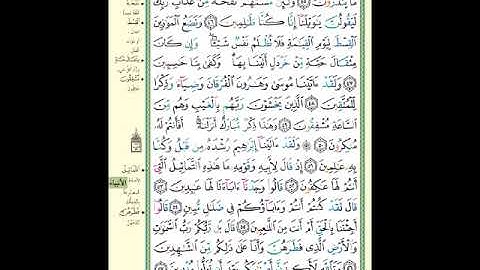 مَا يُنذَرُونَ ﴿٤٥﴾ وَلَئِن مَّسَّتْهُمْ نَفْحَةٌ مِّنْ عَذَابِ رَبِّكَ
لَيَقُولُنَّ يَٰوَيْلَنَآ إِنَّا كُنَّا ظَٰلِمِينَ ﴿٤٦﴾ وَنَضَعُ ٱلْمَوَٰزِينَ
ٱلْقِسْطَ لِيَوْمِ ٱلْقِيَٰمَةِ فَلَا تُظْلَمُ نَفْسٌ شَيْـًٔا وَإِن كَانَ
مِثْقَالَ حَبَّةٍ مِّنْ خَرْدَلٍ أَتَيْنَا بِهَا وَكَفَىٰ بِنَا حَٰسِبِينَ
﴿٤٧﴾ وَلَقَدْ ءَاتَيْنَا مُوسَىٰ وَهَٰرُونَ ٱلْفُرْقَانَ وَضِيَآءً وَذِكْرًا
لِّلْمُتَّقِينَ ﴿٤٨﴾ ٱلَّذِينَ يَخْشَوْنَ رَبَّهُم بِٱلْغَيْبِ وَهُم مِّنَ
ٱلسَّاعَةِ مُشْفِقُونَ ﴿٤٩﴾ وَهَٰذَا ذِكْرٌ مُّبَارَكٌ أَنزَلْنَٰهُ أَفَأَنتُمْ لَهُۥ
مُنكِرُونَ ﴿٥٠﴾ وَلَقَدْ ءَاتَيْنَآ إِبْرَٰهِيمَ رُشْدَهُۥ مِن قَبْلُ وَكُنَّا
بِهِۦ عَٰلِمِينَ ﴿٥١﴾ إِذْ قَالَ لِأَبِيهِ وَقَوْمِهِۦ مَا هَٰذِهِ ٱلتَّمَاثِيلُ ٱلَّتِىٓ
أَنتُمْ لَهَا عَٰكِفُونَ ﴿٥٢﴾ قَالُوا۟ وَجَدْنَآ ءَابَآءَنَا لَهَا عَٰبِدِينَ ﴿٥٣﴾
قَالَ لَقَدْ كُنتُمْ أَنتُمْ وَءَابَآؤُكُمْ فِى ضَلَٰلٍ مُّبِينٍ ﴿٥٤﴾ قَالُوٓا۟
أَجِئْتَنَا بِٱلْحَقِّ أَمْ أَنتَ مِنَ ٱللَّٰعِبِينَ ﴿٥٥﴾ قَالَ بَل رَّبُّكُمْ رَبُّ ٱلسَّمَٰوَٰتِ
وَٱلْأَرْضِ ٱلَّذِى فَطَرَهُنَّ وَأَنَا۠ عَلَىٰ ذَٰلِكُم مِّنَ ٱلشَّٰهِدِينَ
﴿٥٦﴾ وَتَٱللَّهِ لَأَكِيدَنَّ أَصْنَٰمَكُم بَعْدَ أَن تُوَلُّوا۟ مُدْبِرِينَ ﴿٥٧﴾
الأنبياء